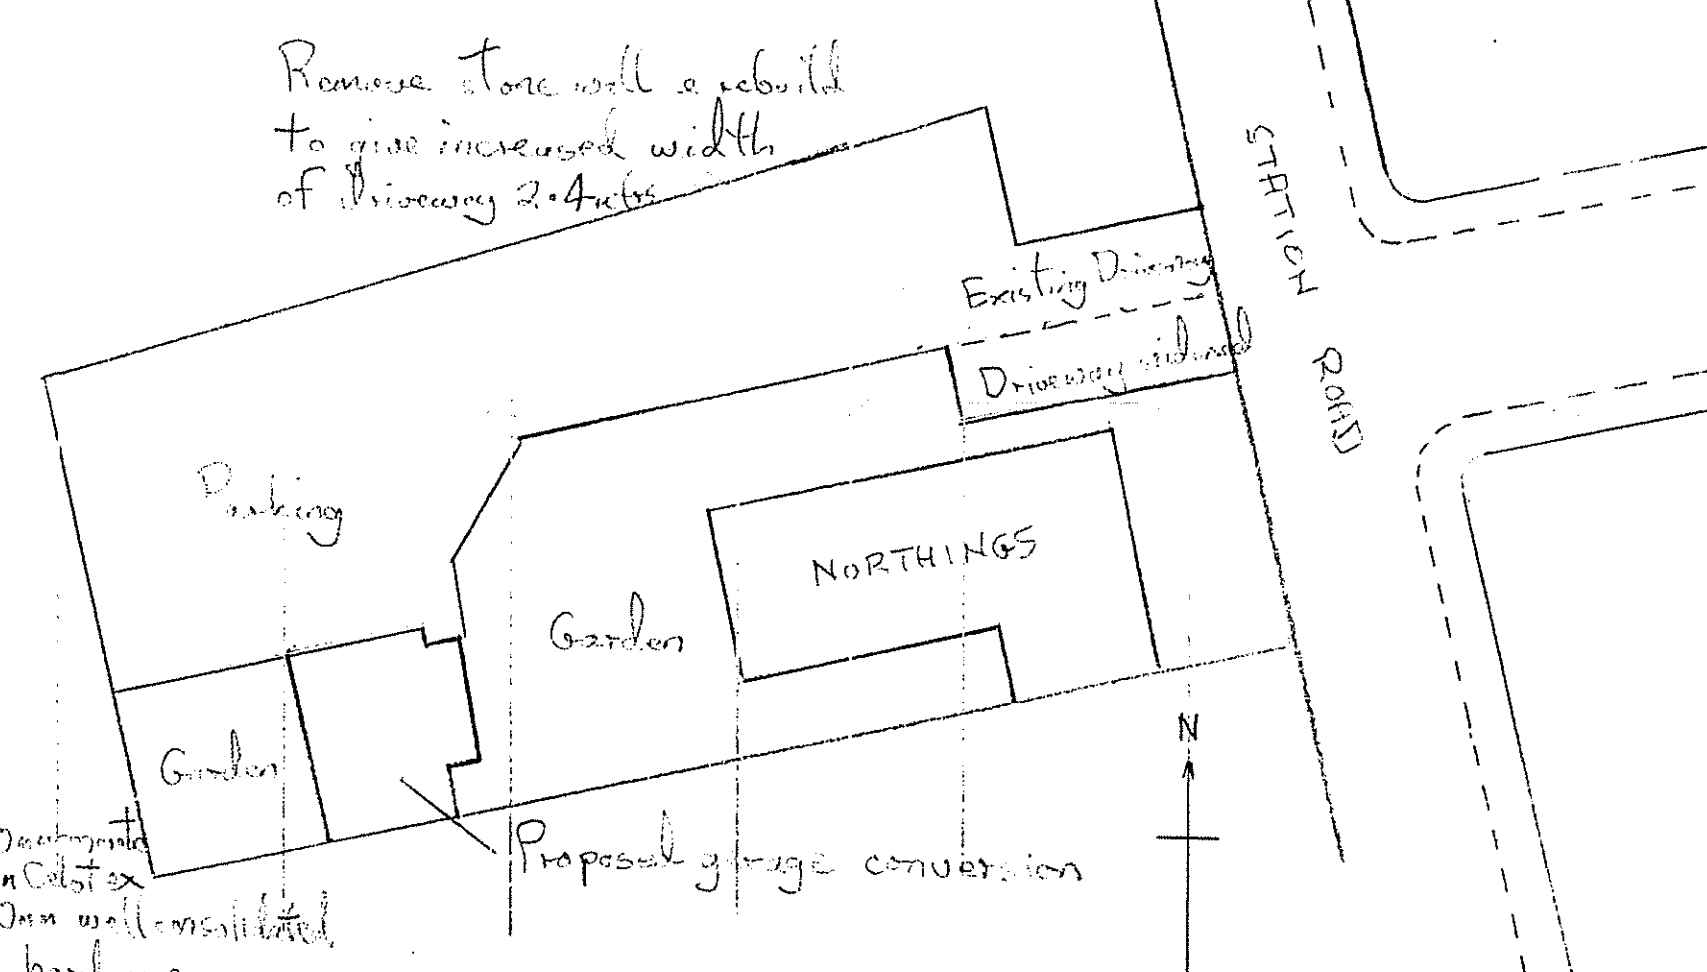 Remove stone wall & rebuild
to give increased width
of Driveway 2.4mtrs
STATION ROAD
Existing Driveway
Driveway widened
Parking
NORTHINGS
Garden
Garden
N
Proposed garage conversion
Celotex
well consolidated